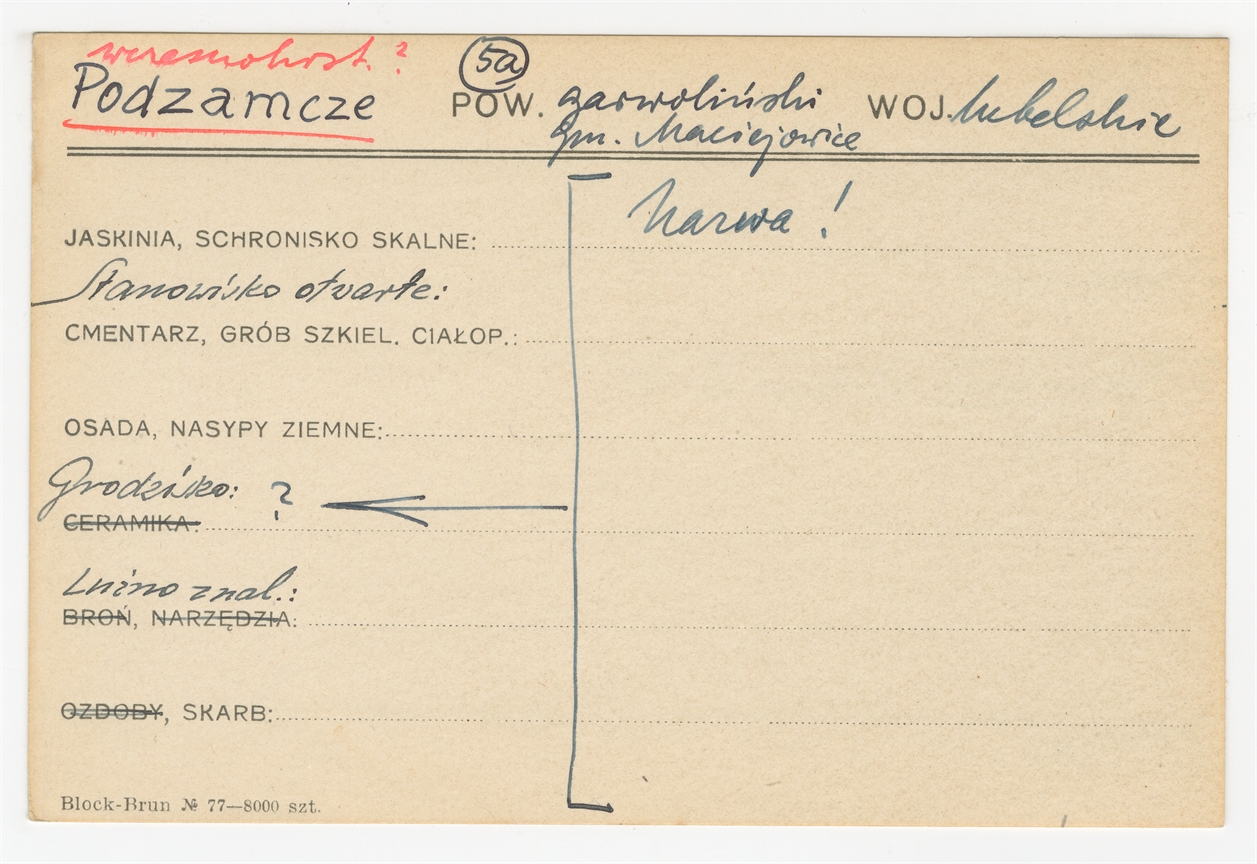 wczesnohist. ?
5a
Podzamcze POW. garwoliński WOJ. lubelskie
gm. Maciejowice
Nazwa !
JASKINIA, SCHRONISKO SKALNE:
Stanowisko otwarte:
CMENTARZ, GRÓB SZKIEL. CIAŁOP.:
OSADA, NASYPY ZIEMNE:
Grodzisko: ?
CERAMIKA:
Luźno znal.:
BROŃ, NARZĘDZIA:
OZDOBY, SKARB:
Block-Brun № 77—8000 szt.